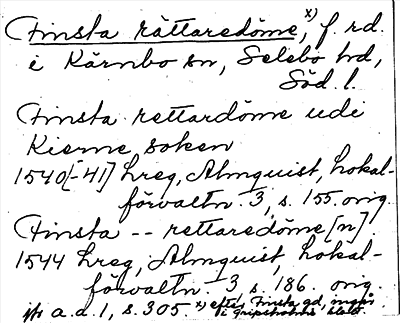 Finsta rättaredöme, x) f. rd.
i Kärnbo sn, Selebo hd,
Söd. l.
Finsta rettardöme udi
Kierne soken
1540[-41] hreg, Almquist, Lokal-
förvaltn. 3, s. 155. orig.
Finsta -- rettaredöme[n].
1544 hreg, Almquist, Lokal-
förvaltn. 3, s. 186. orig.
jfr a.a. 1, s. 305 x) efter Finsta gd, inga
i Gripsholms slott.